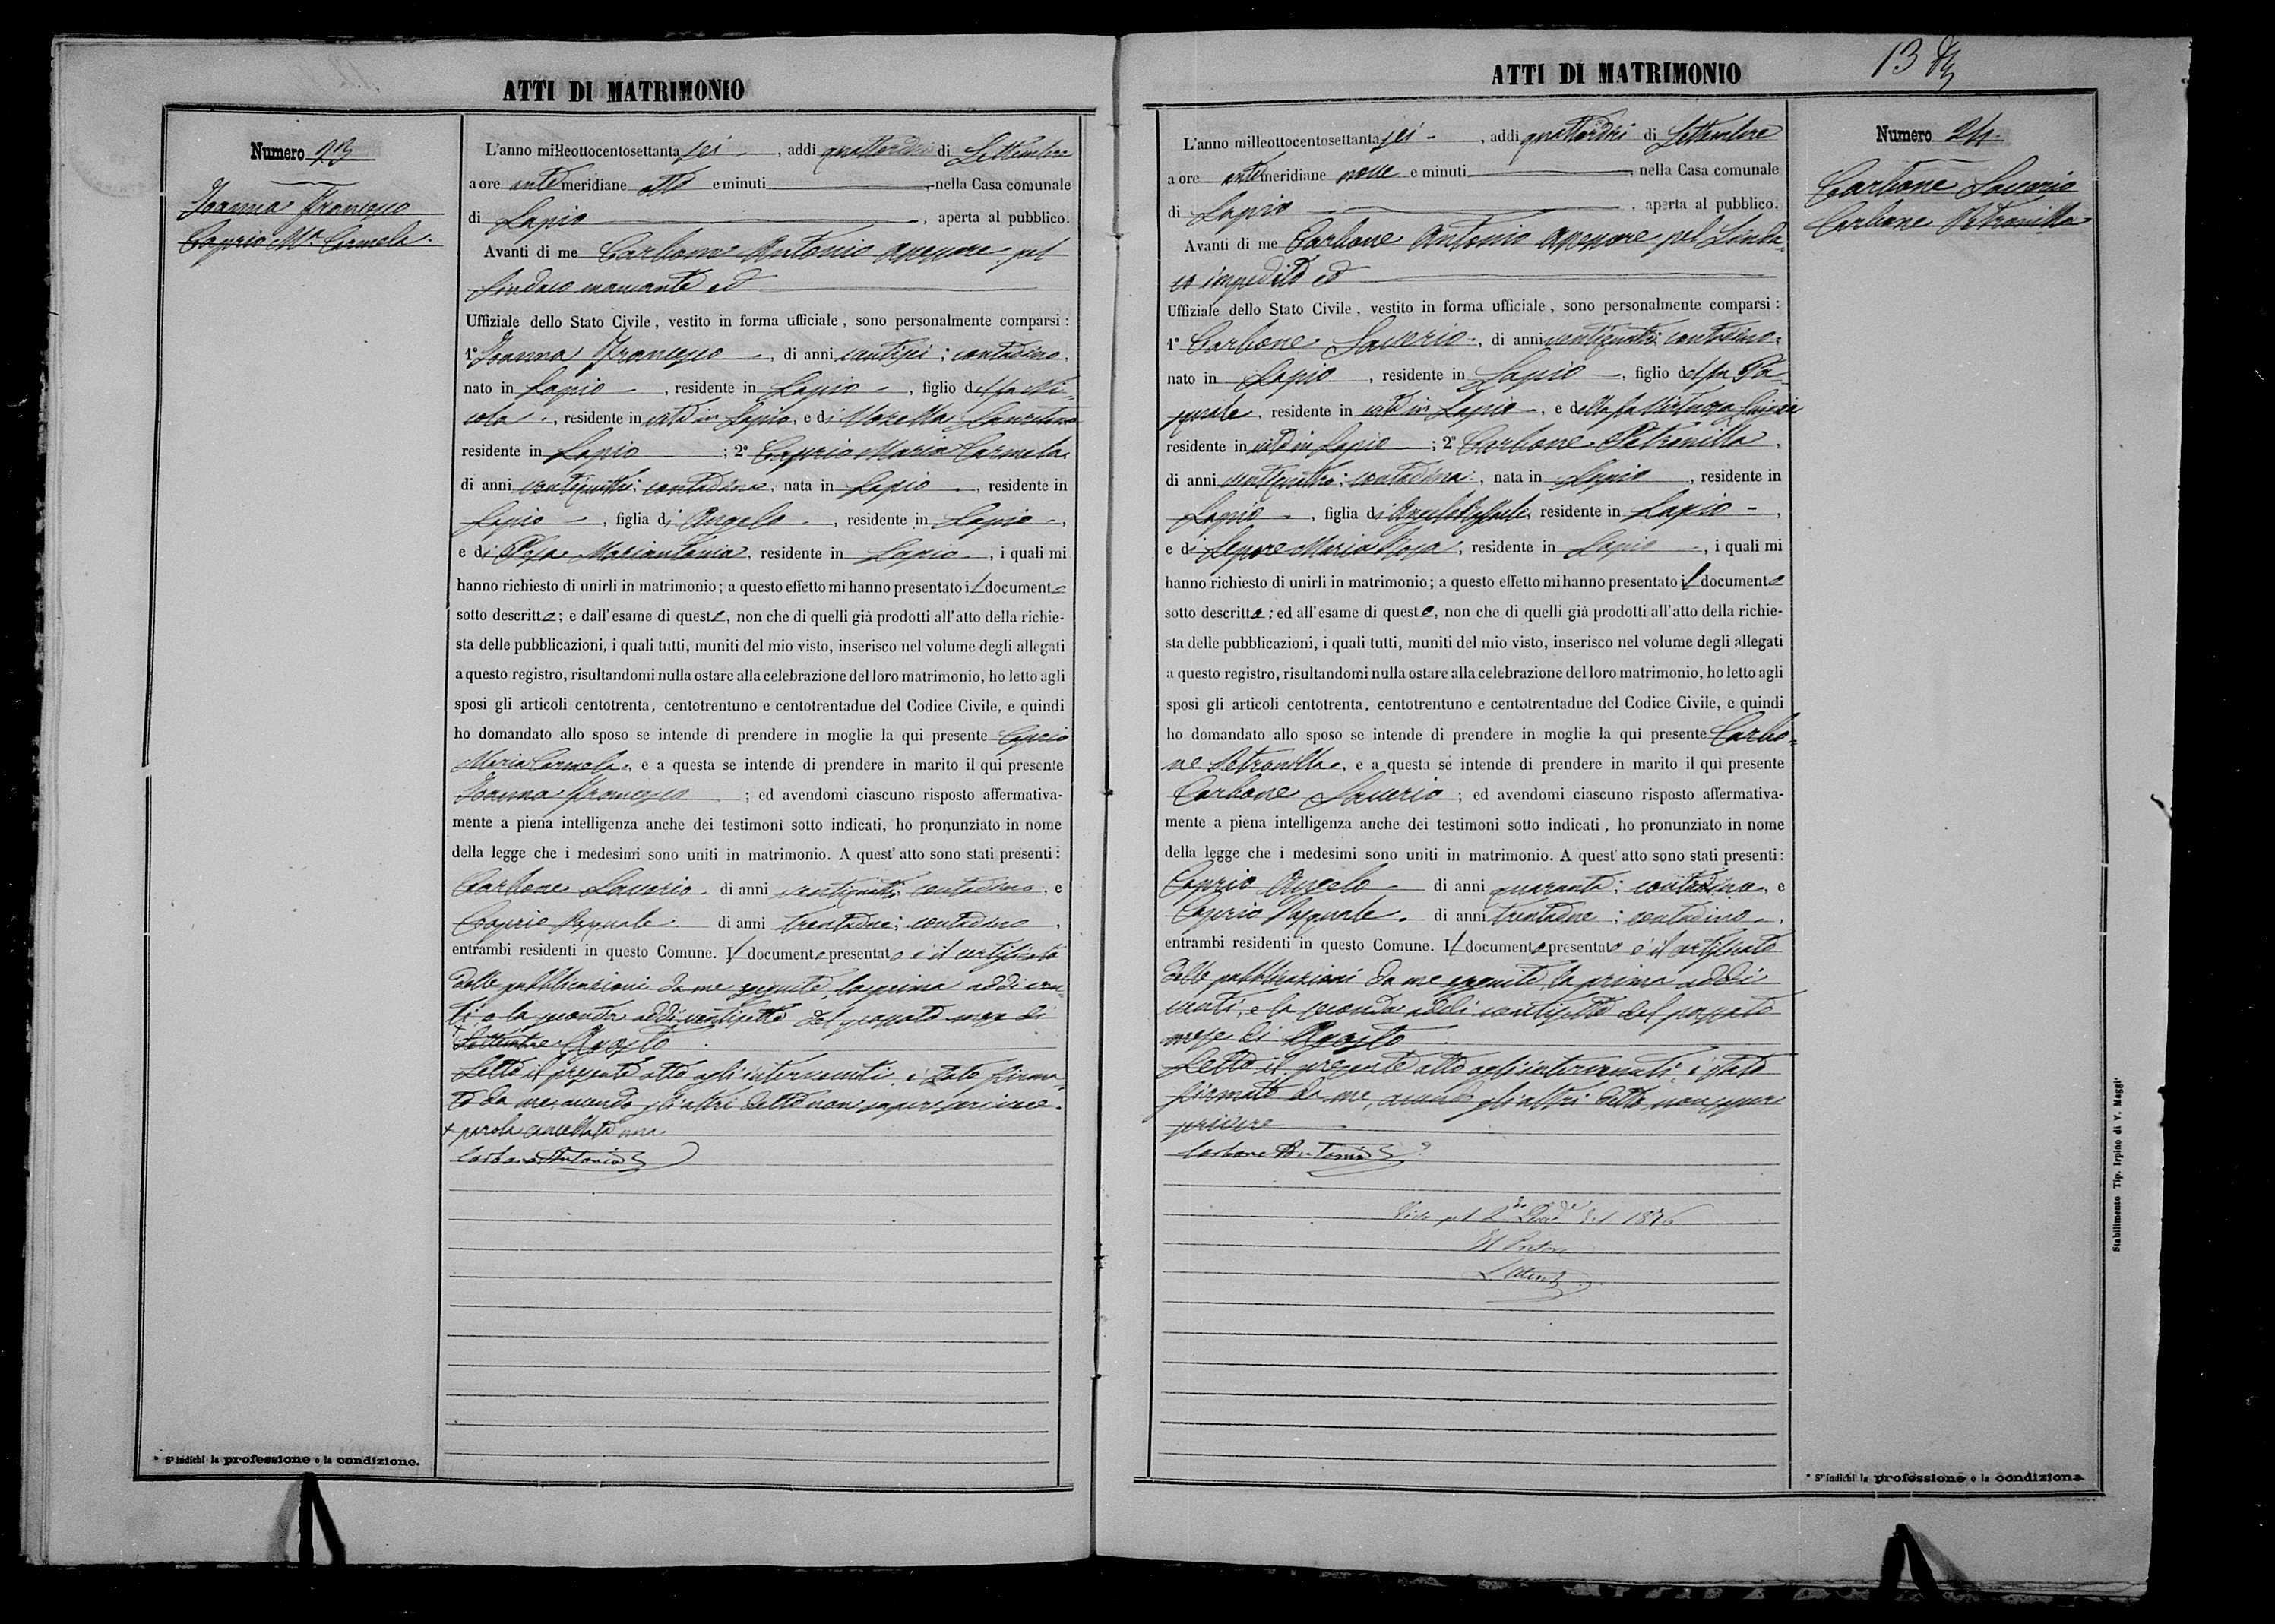 ATTI DI MATRIMONIO
Numero 23
Ioanna Francesco
Caprio Mª Carmela
L'anno milleottocentosettanta sei, addì quattordici di Settembre
a ore antemeridiane otto e minuti, nella Casa comunale
di Lapio, aperta al pubblico.
Avanti di me Carbone Antonio Assessore pel
Sindaco mancante ed
Uffiziale dello Stato Civile, vestito in forma ufficiale, sono personalmente comparsi:
1º Ioanna Francesco, di anni ventisei; contadino,
nato in Lapio, residente in Lapio, figlio del fu Ni-
cola, residente in vita in Lapio, e di
residente in Lapio; 2º Caprio Maria Carmela
di anni ventiquattro; contadina, nata in Lapio, residente in
Lapio, figlia di Angelo, residente in Lapio,
e di Mariantonia, residente in Lapio, i quali mi
hanno richiesto di unirli in matrimonio; a questo effetto mi hanno presentato il documento
sotto descritto; e dall'esame di questo, non che di quelli già prodotti all'atto della richie-
sta delle pubblicazioni, i quali tutti, muniti del mio visto, inserisco nel volume degli allegati
a questo registro, risultandomi nulla ostare alla celebrazione del loro matrimonio, ho letto agli
sposi gli articoli centotrenta, centotrentuno e centotrentadue del Codice Civile, e quindi
ho domandato allo sposo se intende di prendere in moglie la qui presente Caprio
Maria Carmela, e a questa se intende di prendere in marito il qui presente
Ioanna Francesco; ed avendomi ciascuno risposto affermativa-
mente a piena intelligenza anche dei testimoni sotto indicati, ho pronunziato in nome
della legge che i medesimi sono uniti in matrimonio. A quest'atto sono stati presenti:
Carbone Saverio di anni ventiquattro; contadino, e
Caprio Pasquale di anni trentadue; contadino,
entrambi residenti in questo Comune. Il documento presentato è il certificato
delle pubblicazioni da me eseguite, la prima addì ven-
ti, e la seconda addì ventisette del passato mese di
+ Settembre Agosto
Letto il presente atto agli intervenuti, è stato firma-
to da me, avendo gli altri detto non saper scrivere.
+ parola cancellata una
Carbone Antonio
* Si indichi la professione o la condizione.
ATTI DI MATRIMONIO
13
Numero 24
Carbone Saverio
Carbone Petronilla
L'anno milleottocentosettanta sei, addì quattordici di Settembre
a ore antemeridiane nove e minuti, nella Casa comunale
di Lapio, aperta al pubblico.
Avanti di me Carbone Antonio Assessore pel Sinda-
co impedito ed
Uffiziale dello Stato Civile, vestito in forma ufficiale, sono personalmente comparsi:
1º Carbone Saverio, di anni ventiquattro; contadino,
nato in Lapio, residente in Lapio, figlio del fu Pa-
squale, residente in vita in Lapio, e della fu
residente in vita in Lapio; 2º Carbone Petronilla,
di anni ventiquattro; contadina, nata in Lapio, residente in
Lapio, figlia di, residente in Lapio,
e di Lepore Maria Rosa, residente in Lapio, i quali mi
hanno richiesto di unirli in matrimonio; a questo effetto mi hanno presentato il documento
sotto descritto; ed all'esame di questo, non che di quelli già prodotti all'atto della richie-
sta delle pubblicazioni, i quali tutti, muniti del mio visto, inserisco nel volume degli allegati
a questo registro, risultandomi nulla ostare alla celebrazione del loro matrimonio, ho letto agli
sposi gli articoli centotrenta, centotrentuno e centotrentadue del Codice Civile, e quindi
ho domandato allo sposo se intende di prendere in moglie la qui presente Carbo-
ne Petronilla, e a questa se intende di prendere in marito il qui presente
Carbone Saverio; ed avendomi ciascuno risposto affermativa-
mente a piena intelligenza anche dei testimoni sotto indicati, ho pronunziato in nome
della legge che i medesimi sono uniti in matrimonio. A quest'atto sono stati presenti:
Caprio Angelo di anni quaranta; contadino, e
Caprio Pasquale di anni trentadue; contadino,
entrambi residenti in questo Comune. Il documento presentato è il certificato
delle pubblicazioni da me eseguite, la prima addì
venti, e la seconda addì ventisette del passato
mese di Agosto
Letto il presente atto agli intervenuti, è stato
firmato da me, avendo gli altri detto non saper
scrivere
Carbone Antonio
1876
Il Pretore
* Si indichi la professione o la condizione.
Stabilimento Tip. Irpino di V. Maggi